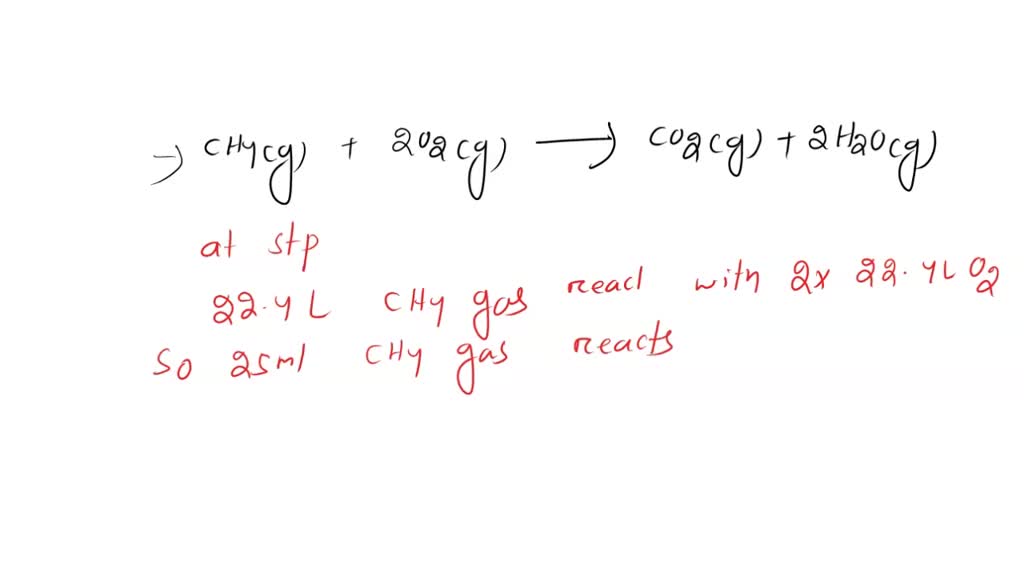 → CH4(g) + 2O2(g) ⟶ CO2(g) + 2H2O(g)
at stp
22.4 L CH4 gas react with 2x 22.4L O2
So 25ml CH4 gas reacts